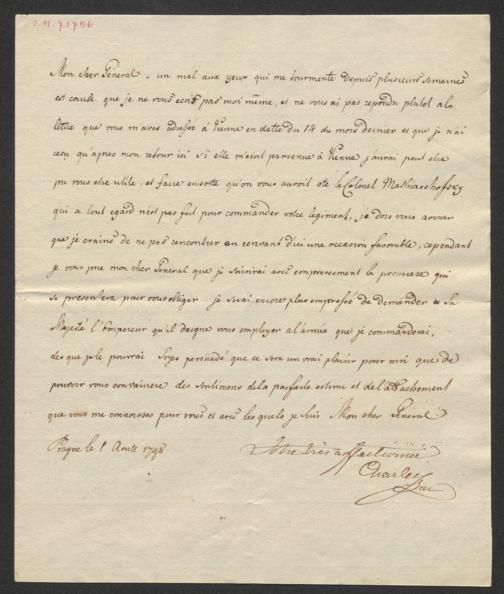 I.N. 71756
Mon cher General. un mal aux yeux qui me tourmente depuis plusieurs semaines
est cause que je ne vous ecris pas moi même, et ne vous ai pas repondu plutot a la
lettre que vous m'aves adressée à Vienne en datte du 14 du mois dernier et que je n'ai
reçu qu'apres mon retour ici si elle m'etoit parvenue à Vienne, j'aurai peut etre
pu vous etre utile, et faire ensorte qu'on vous auroit oté le Colonel Mathiaschofsky
qui a tout egard n'est pas fait pour commander votre Regiment, je dois vous avouer
que je crains de ne pas rencontrer en ecrivant d'ici une occasion favorable, cependant
je vous prie mon cher General que je saisirai avec empressement la premiere qui
se presentera pour vous obliger je serai encore plus empressé de demander a Sa
Majesté l'Empereur qu'il daigne vous employer al'armée que je commanderai,
des que je le pourrai Soyes persuadé que ce sera un vrai plaisir pour moi que de
pouvoir vous convaincre des sentimens de la parfaite estime et de l'attachement
que vous me connoissez pour vous et avec les quels je suis Mon cher General
Prague le 1 Aout 1798
Votre très affectionné
Charles